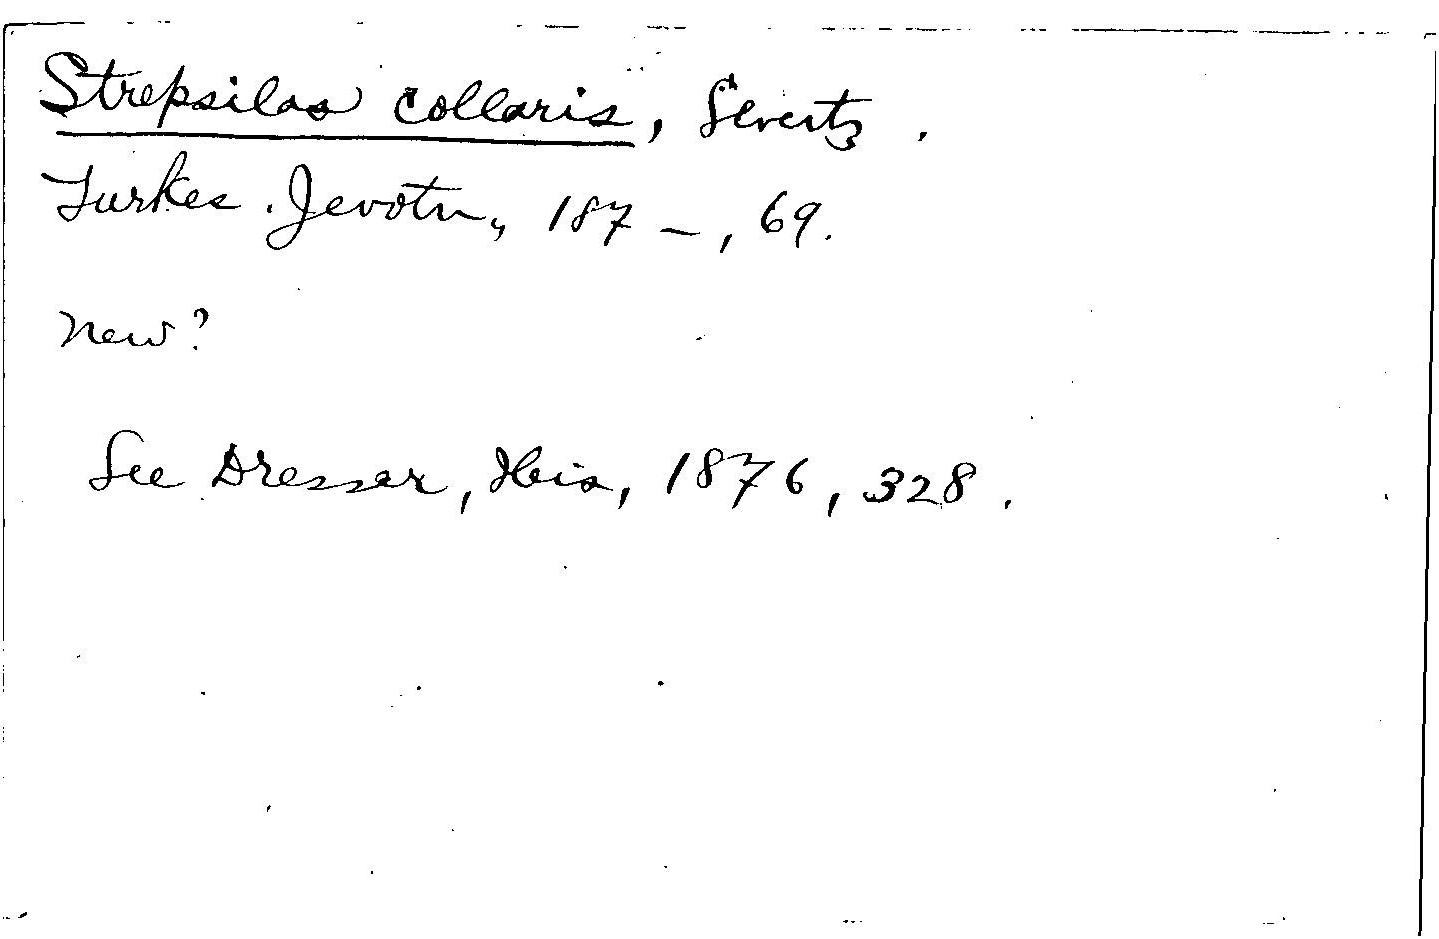 Strepsilas collaris, Severtz.
Turkes. Jevotn, 187-, 69.
New?
See Dresser, Ibis, 1876, 328.